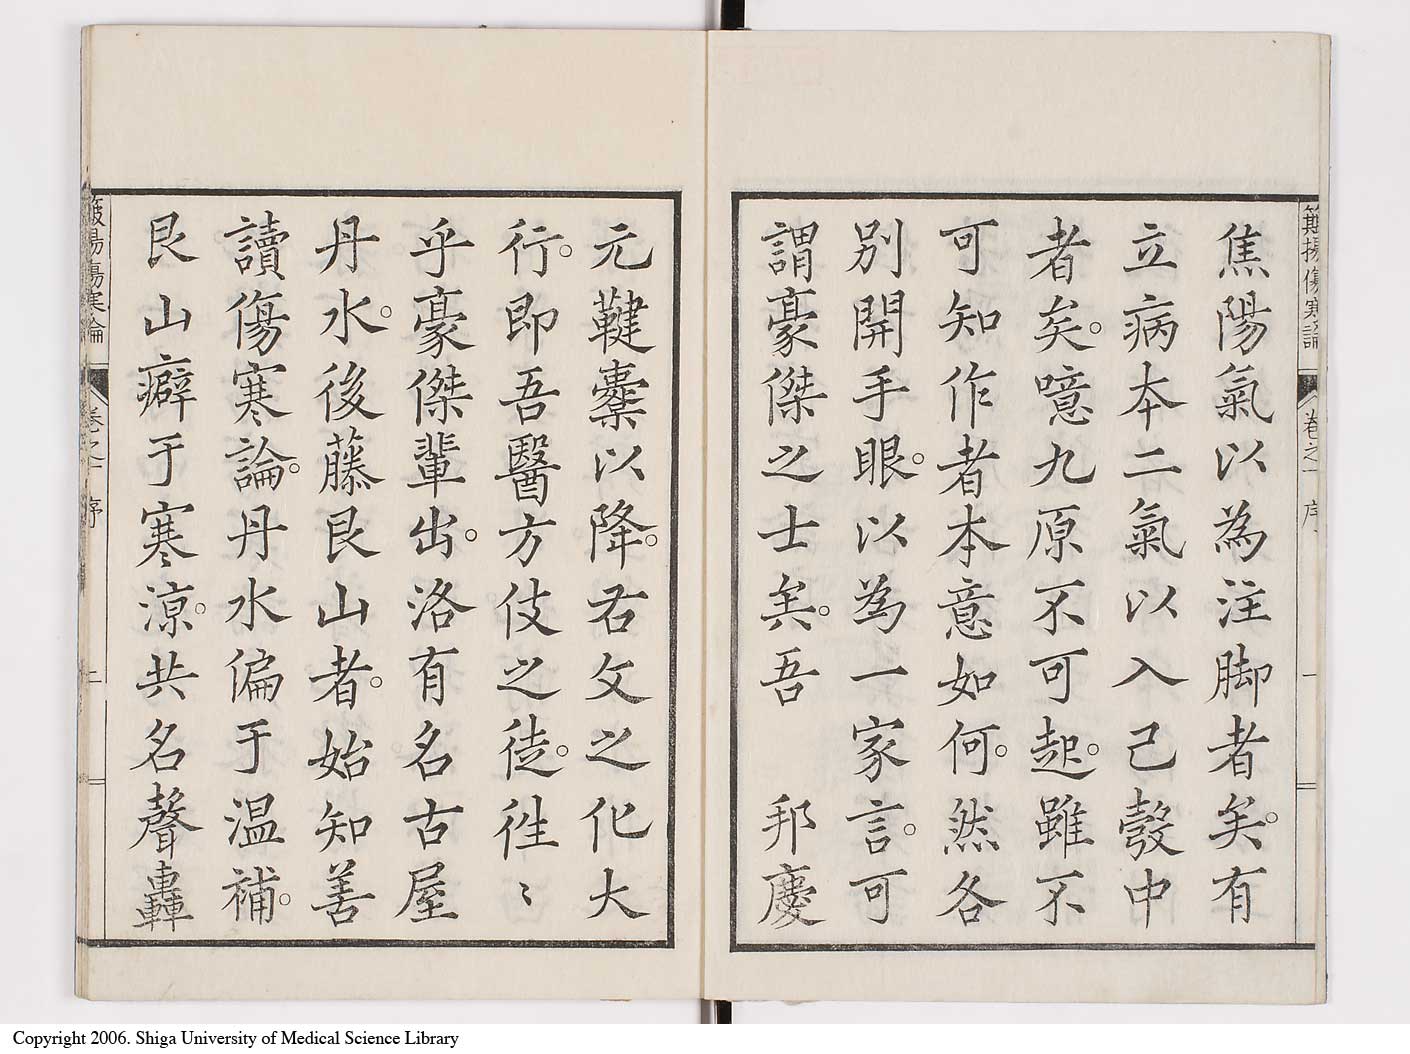 焦陽氣以為注脚者矣。有
立病本二氣以入己彀中
者矣。噫九原不可起。雖不
可知作者本意如何。然各
別開手眼。以為一家言。可
謂豪傑之士矣。吾 邦慶
傷寒論
卷之一 序
一
元鞬櫜以降。右文之化大
行。即吾醫方伎之徒。徃〻
乎豪傑輩出。洛有名古屋
丹水。後藤艮山者。始知善
讀傷寒論。丹水偏于温補。
艮山癖于寒凉。共名聲轟
傷寒論
卷之一 序
二
Copyright 2006. Shiga University of Medical Science Library